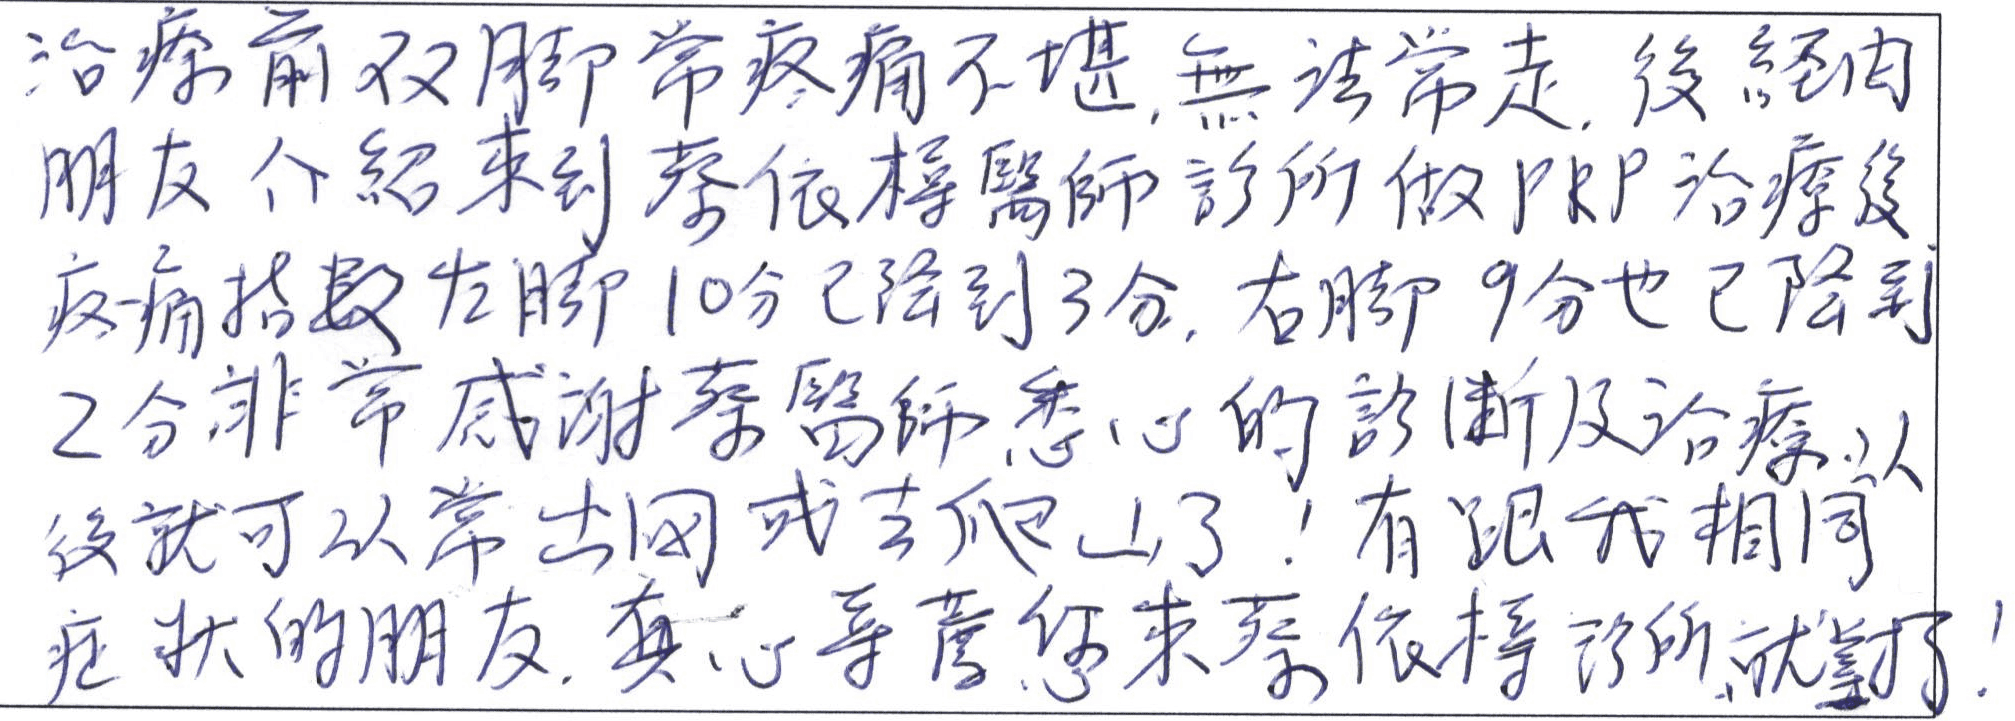 治療前双脚常疼痛不堪,無法常走.後経由
朋友介紹來到蔡依樺醫師診所做PRP治療後
疼痛指数左脚10分已降到3分.右脚9分也已降到
2分.非常感謝蔡醫師悉心的診断及治療.以
後就可以常出国或去爬山了!有跟我相同
症狀的朋友.真心推薦您來蔡依樺診所.就對了!